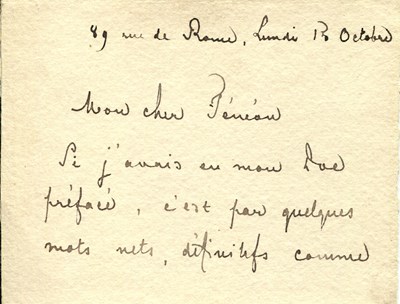 89 rue de Rome, Lundi 13 Octobre
Mon cher Fénéon
Si j'avais eu mon Poe
préfacé, c'est par quelques
mots nets, définitifs comme